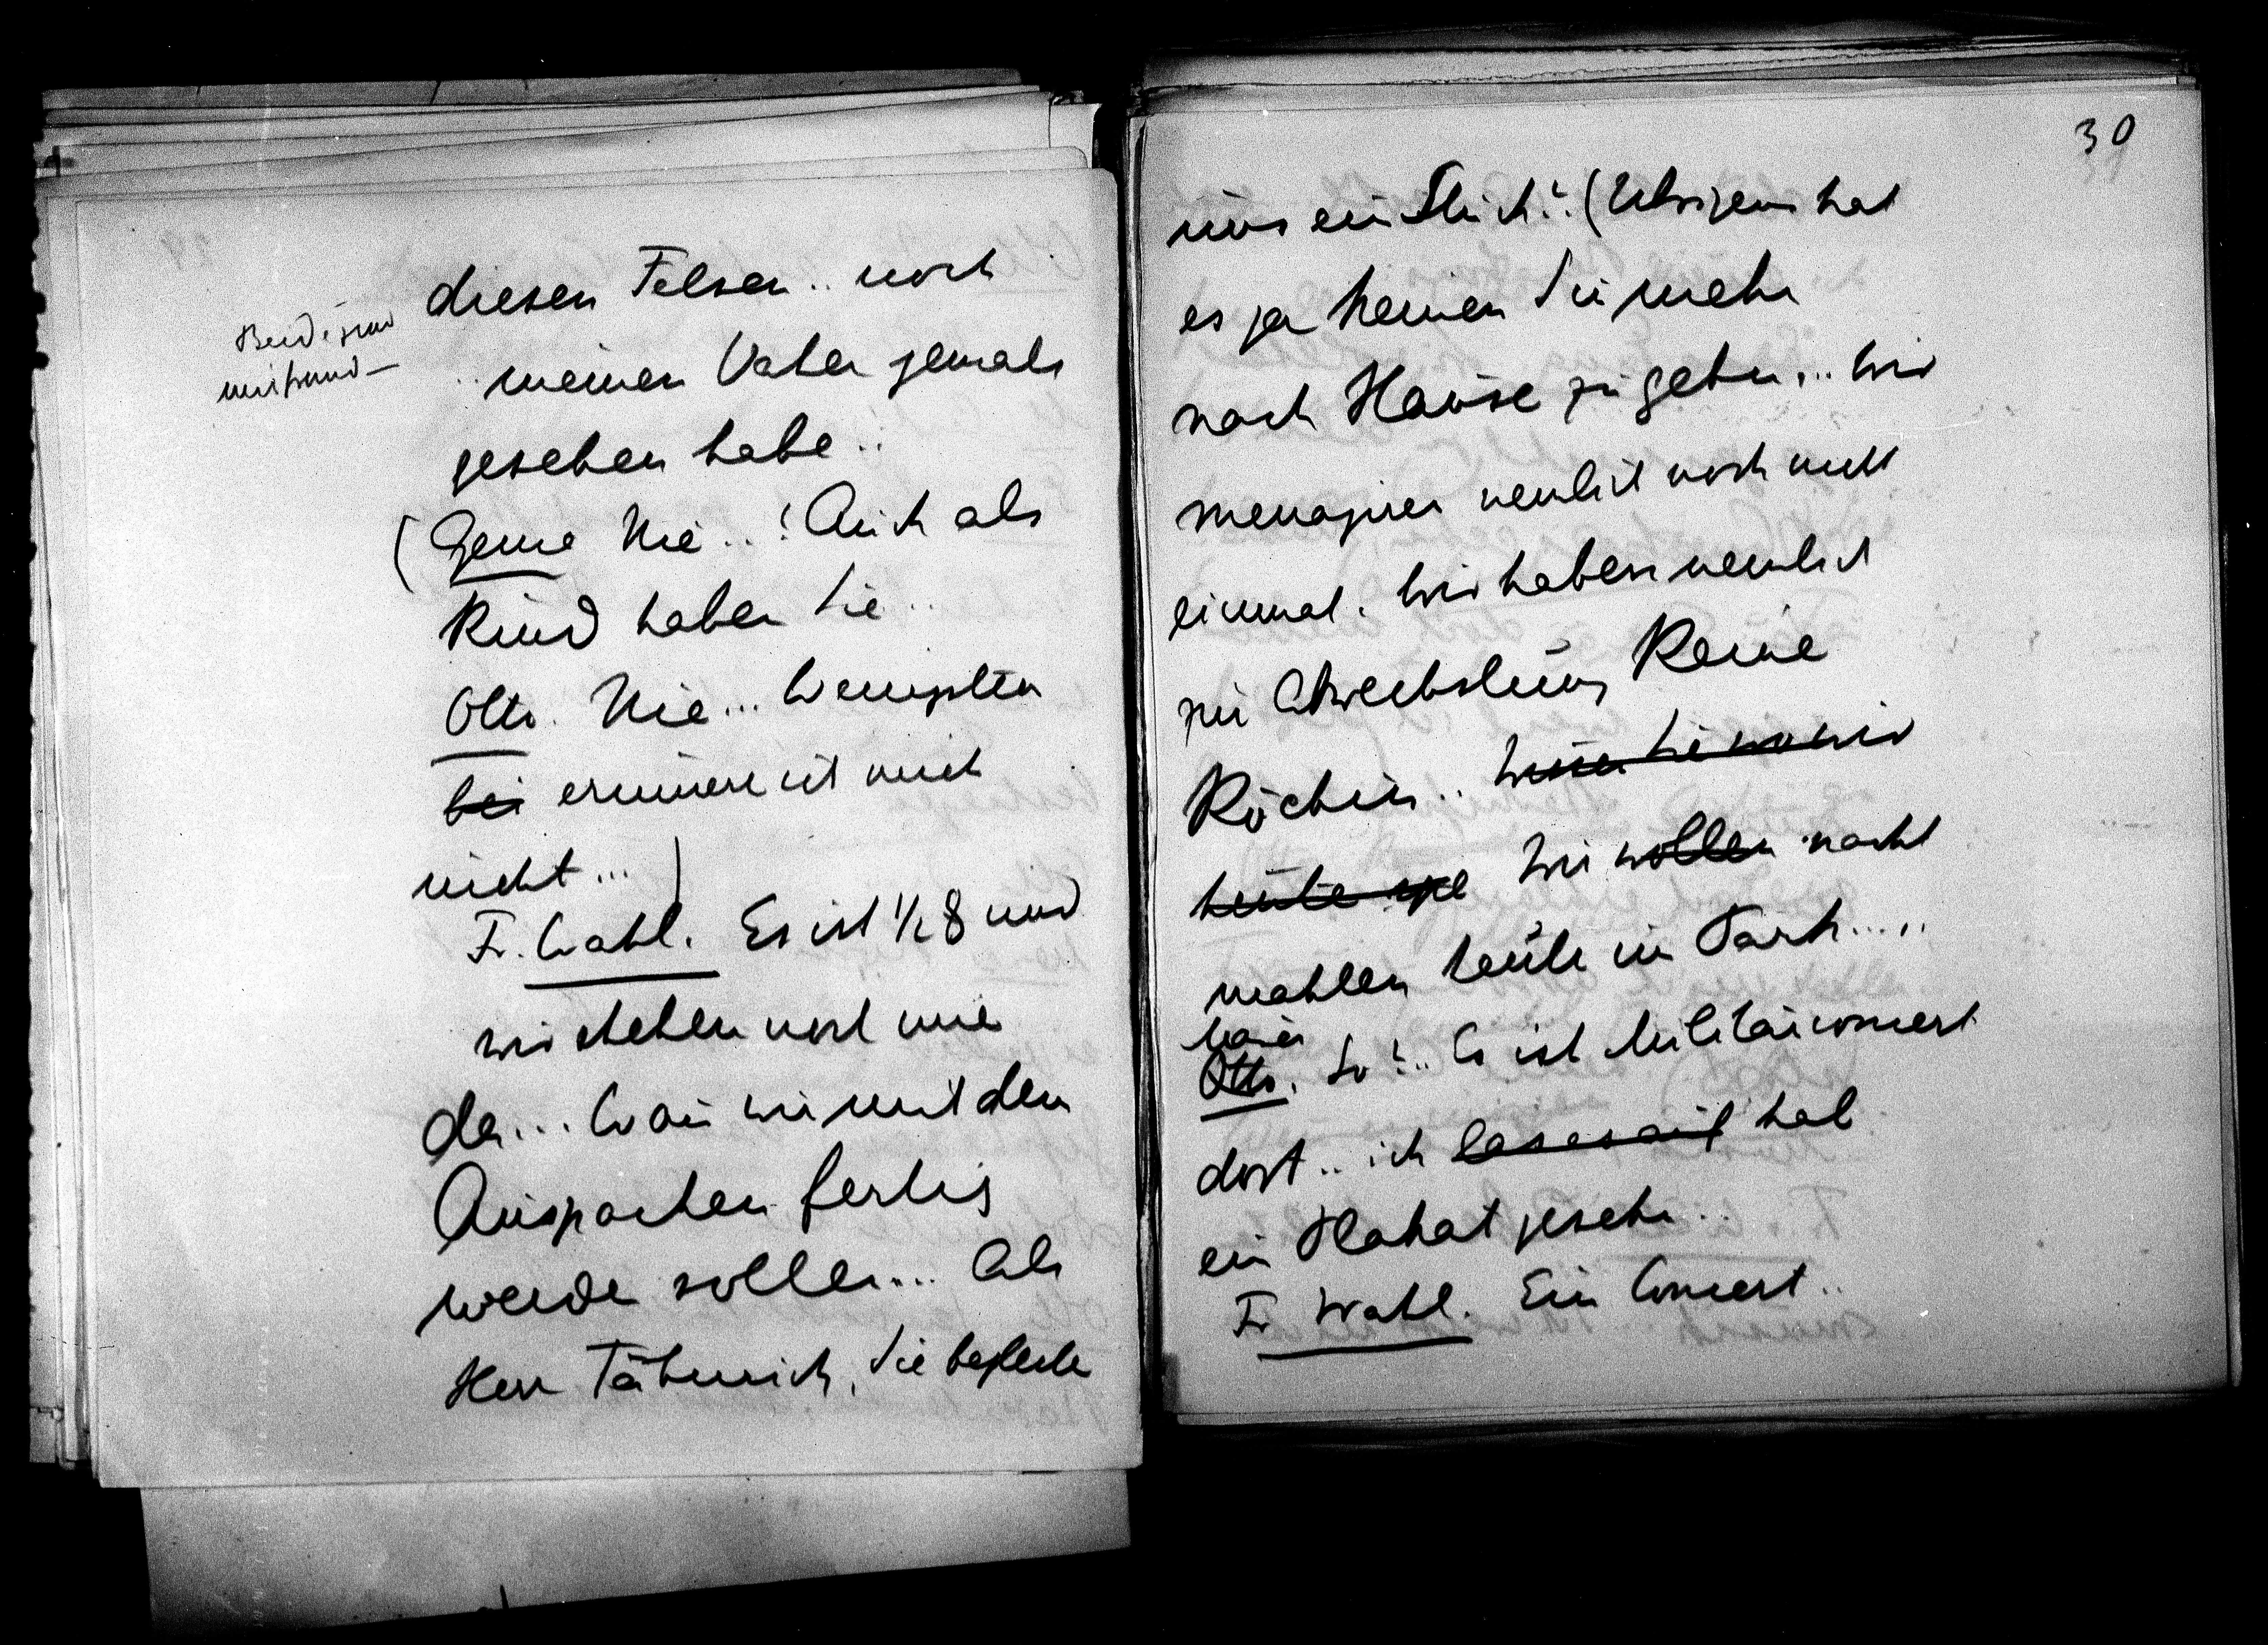 diesen Felsen.. noch
meinen Vater jemals
gesehen habe..
(Genia Nie..! Auch als
Kind haben Sie..
Otto. Nie... Wenigsten
bei erinnere ich mich
nicht...)
Fr. Wahl. Es ist ½8 und
wir stehen noch immer
da... Wann wir mit dem
Auspacken fertig
werden sollen... Also
Herr Fähnrich, Sie begleiten
30
uns ein Stück? (Übrigens hat
es ja keinen Sinn mehr
nach Hause zu gehen... Wir
menagiren nemlich noch nicht
einmal. Wir haben nemlich
zur Abwechslung keine
Köchin.. Wissen Sie was wir
heute Wir wollen nacht
mahlen heute im Park.....
Otto. So?.. Es ist Militärconcert
dort.. ich las es auf hab
ein Plakat gesehn..
Fr Wahl. Ein Concert..